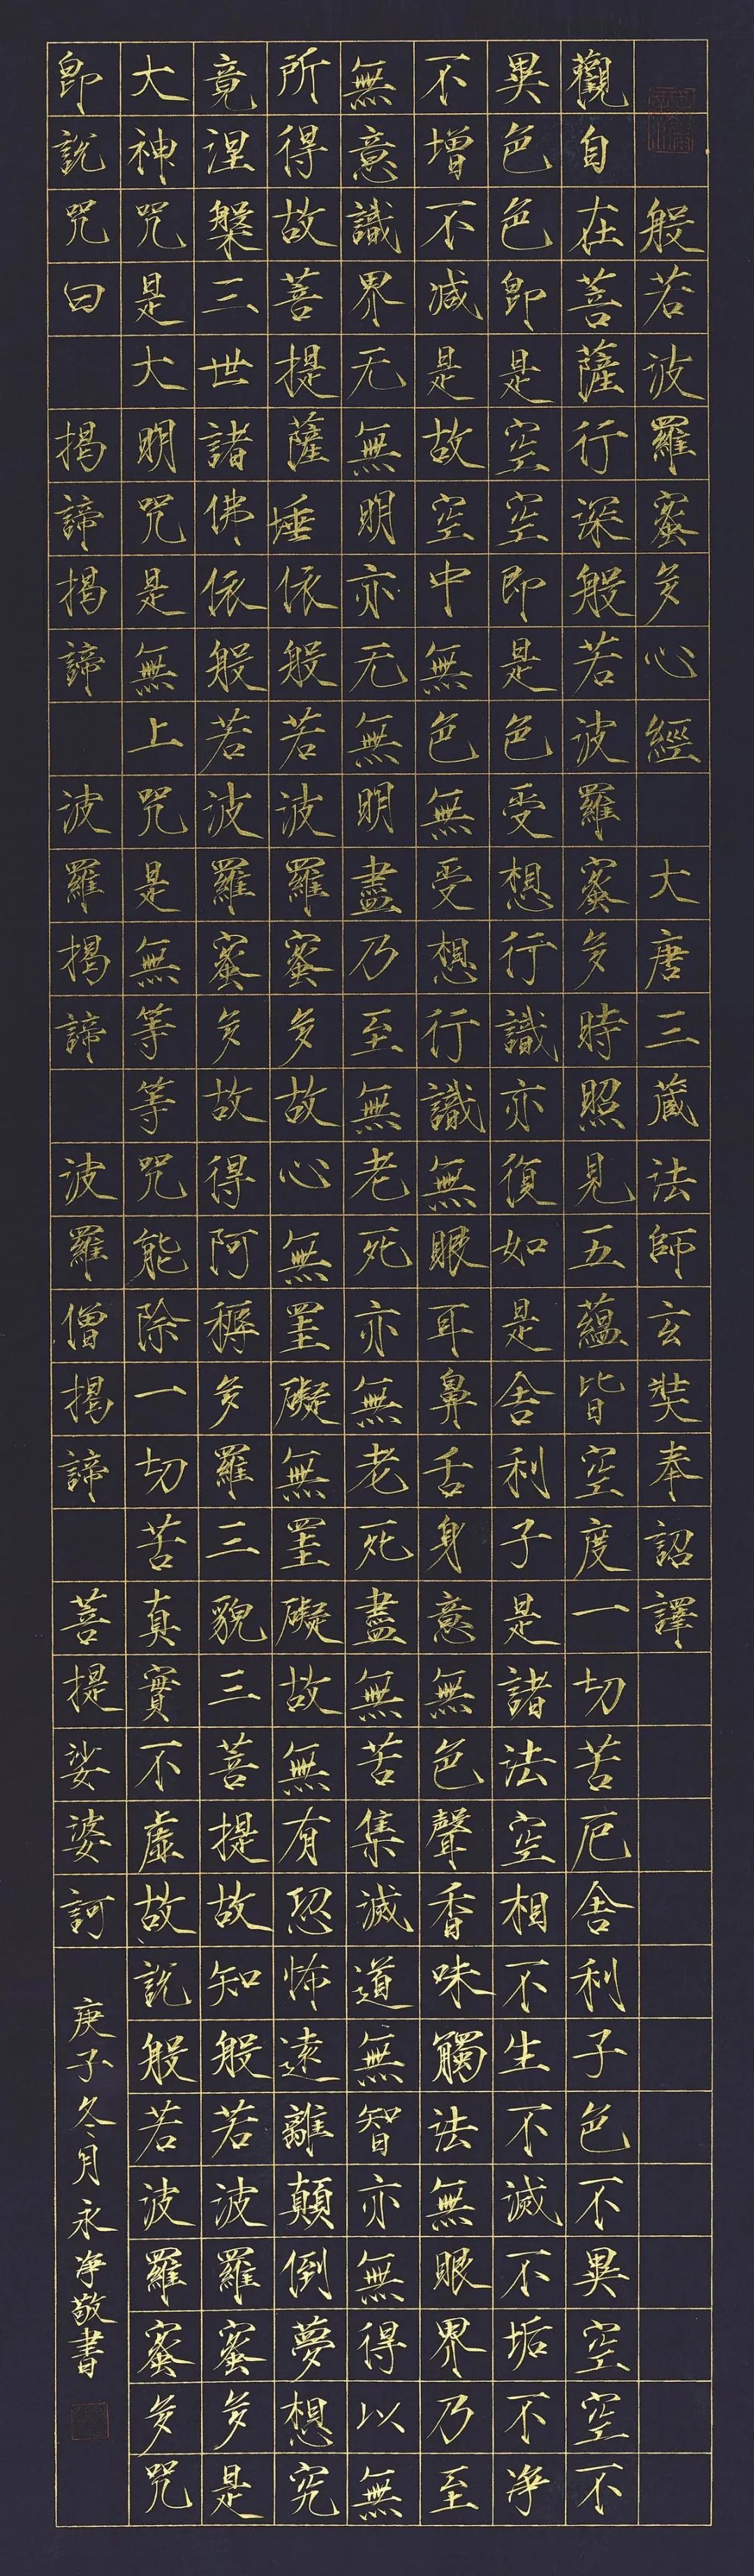 般若波羅蜜多心經 大唐三藏法師玄奘奉詔譯
觀自在菩薩行深般若波羅蜜多時照見五蘊皆空度一切苦厄舍利子色不異空空不
異色色即是空空即是色受想行識亦復如是舍利子是諸法空相不生不滅不垢不净
不增不减是故空中無色無受想行識無眼耳鼻舌身意無色聲香味觸法無眼界乃至
無意識界无無明亦无無明盡乃至無老死亦無老死盡無苦集滅道無智亦無得以無
所得故菩提薩埵依般若波羅蜜多故心無罣礙無罣礙故無有恐怖遠離顛倒夢想究
竟涅槃三世諸佛依般若波羅蜜多故得阿耨多羅三藐三菩提故知般若波羅蜜多是
大神咒是大明咒是無上咒是無等等咒能除一切苦真實不虛故說般若波羅蜜多咒
即說咒曰 揭諦揭諦 波羅揭諦 波羅僧揭諦 菩提娑婆訶
庚子冬月永净敬書